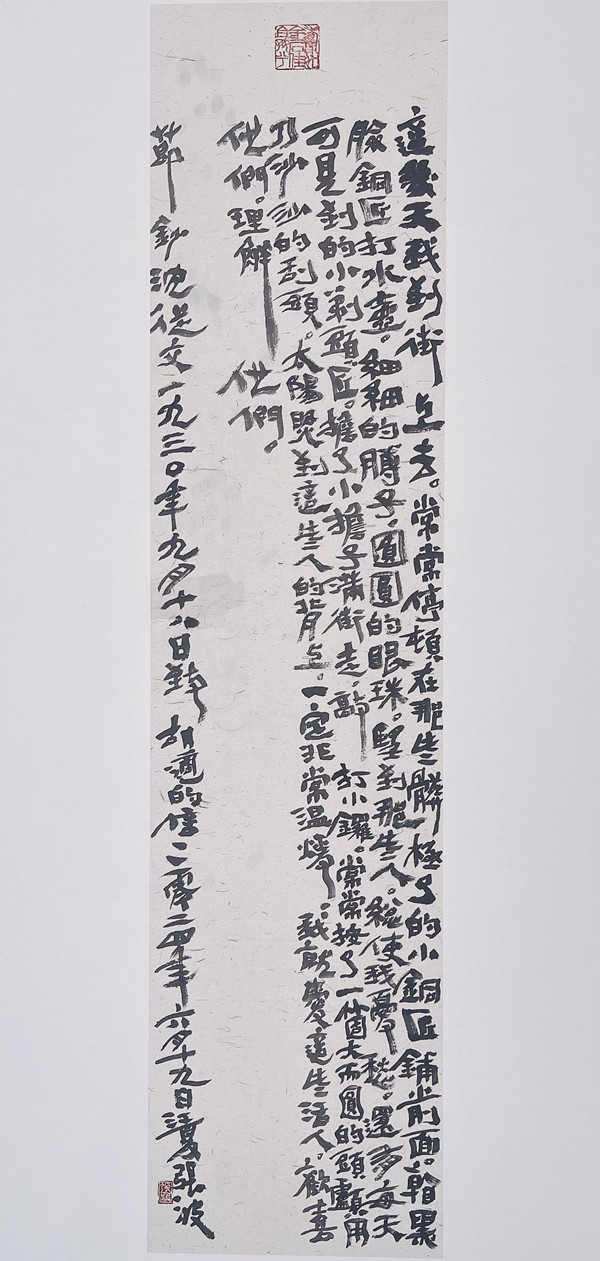 這幾天我到街上去。常常停頓在那些髒極了的小銅匠鋪前面。幹黑
臉銅匠打水壺。細細的膊子。圓圓的眼珠。望到那些人。總使我憂愁。還多每天
可見到的小剃頭匠。擔了小擔子滿街走。敲打小鑼。常常按了一箇大而圓的頭顱用
刀沙沙的刮頭。太陽照到這些人的背上。一定非常溫煖。我就愛這些活人。歡喜
他們。理解他們。
節鈔沈從文一九三〇年九月十八日致胡適的信二零二四年六月十九日江夏張波